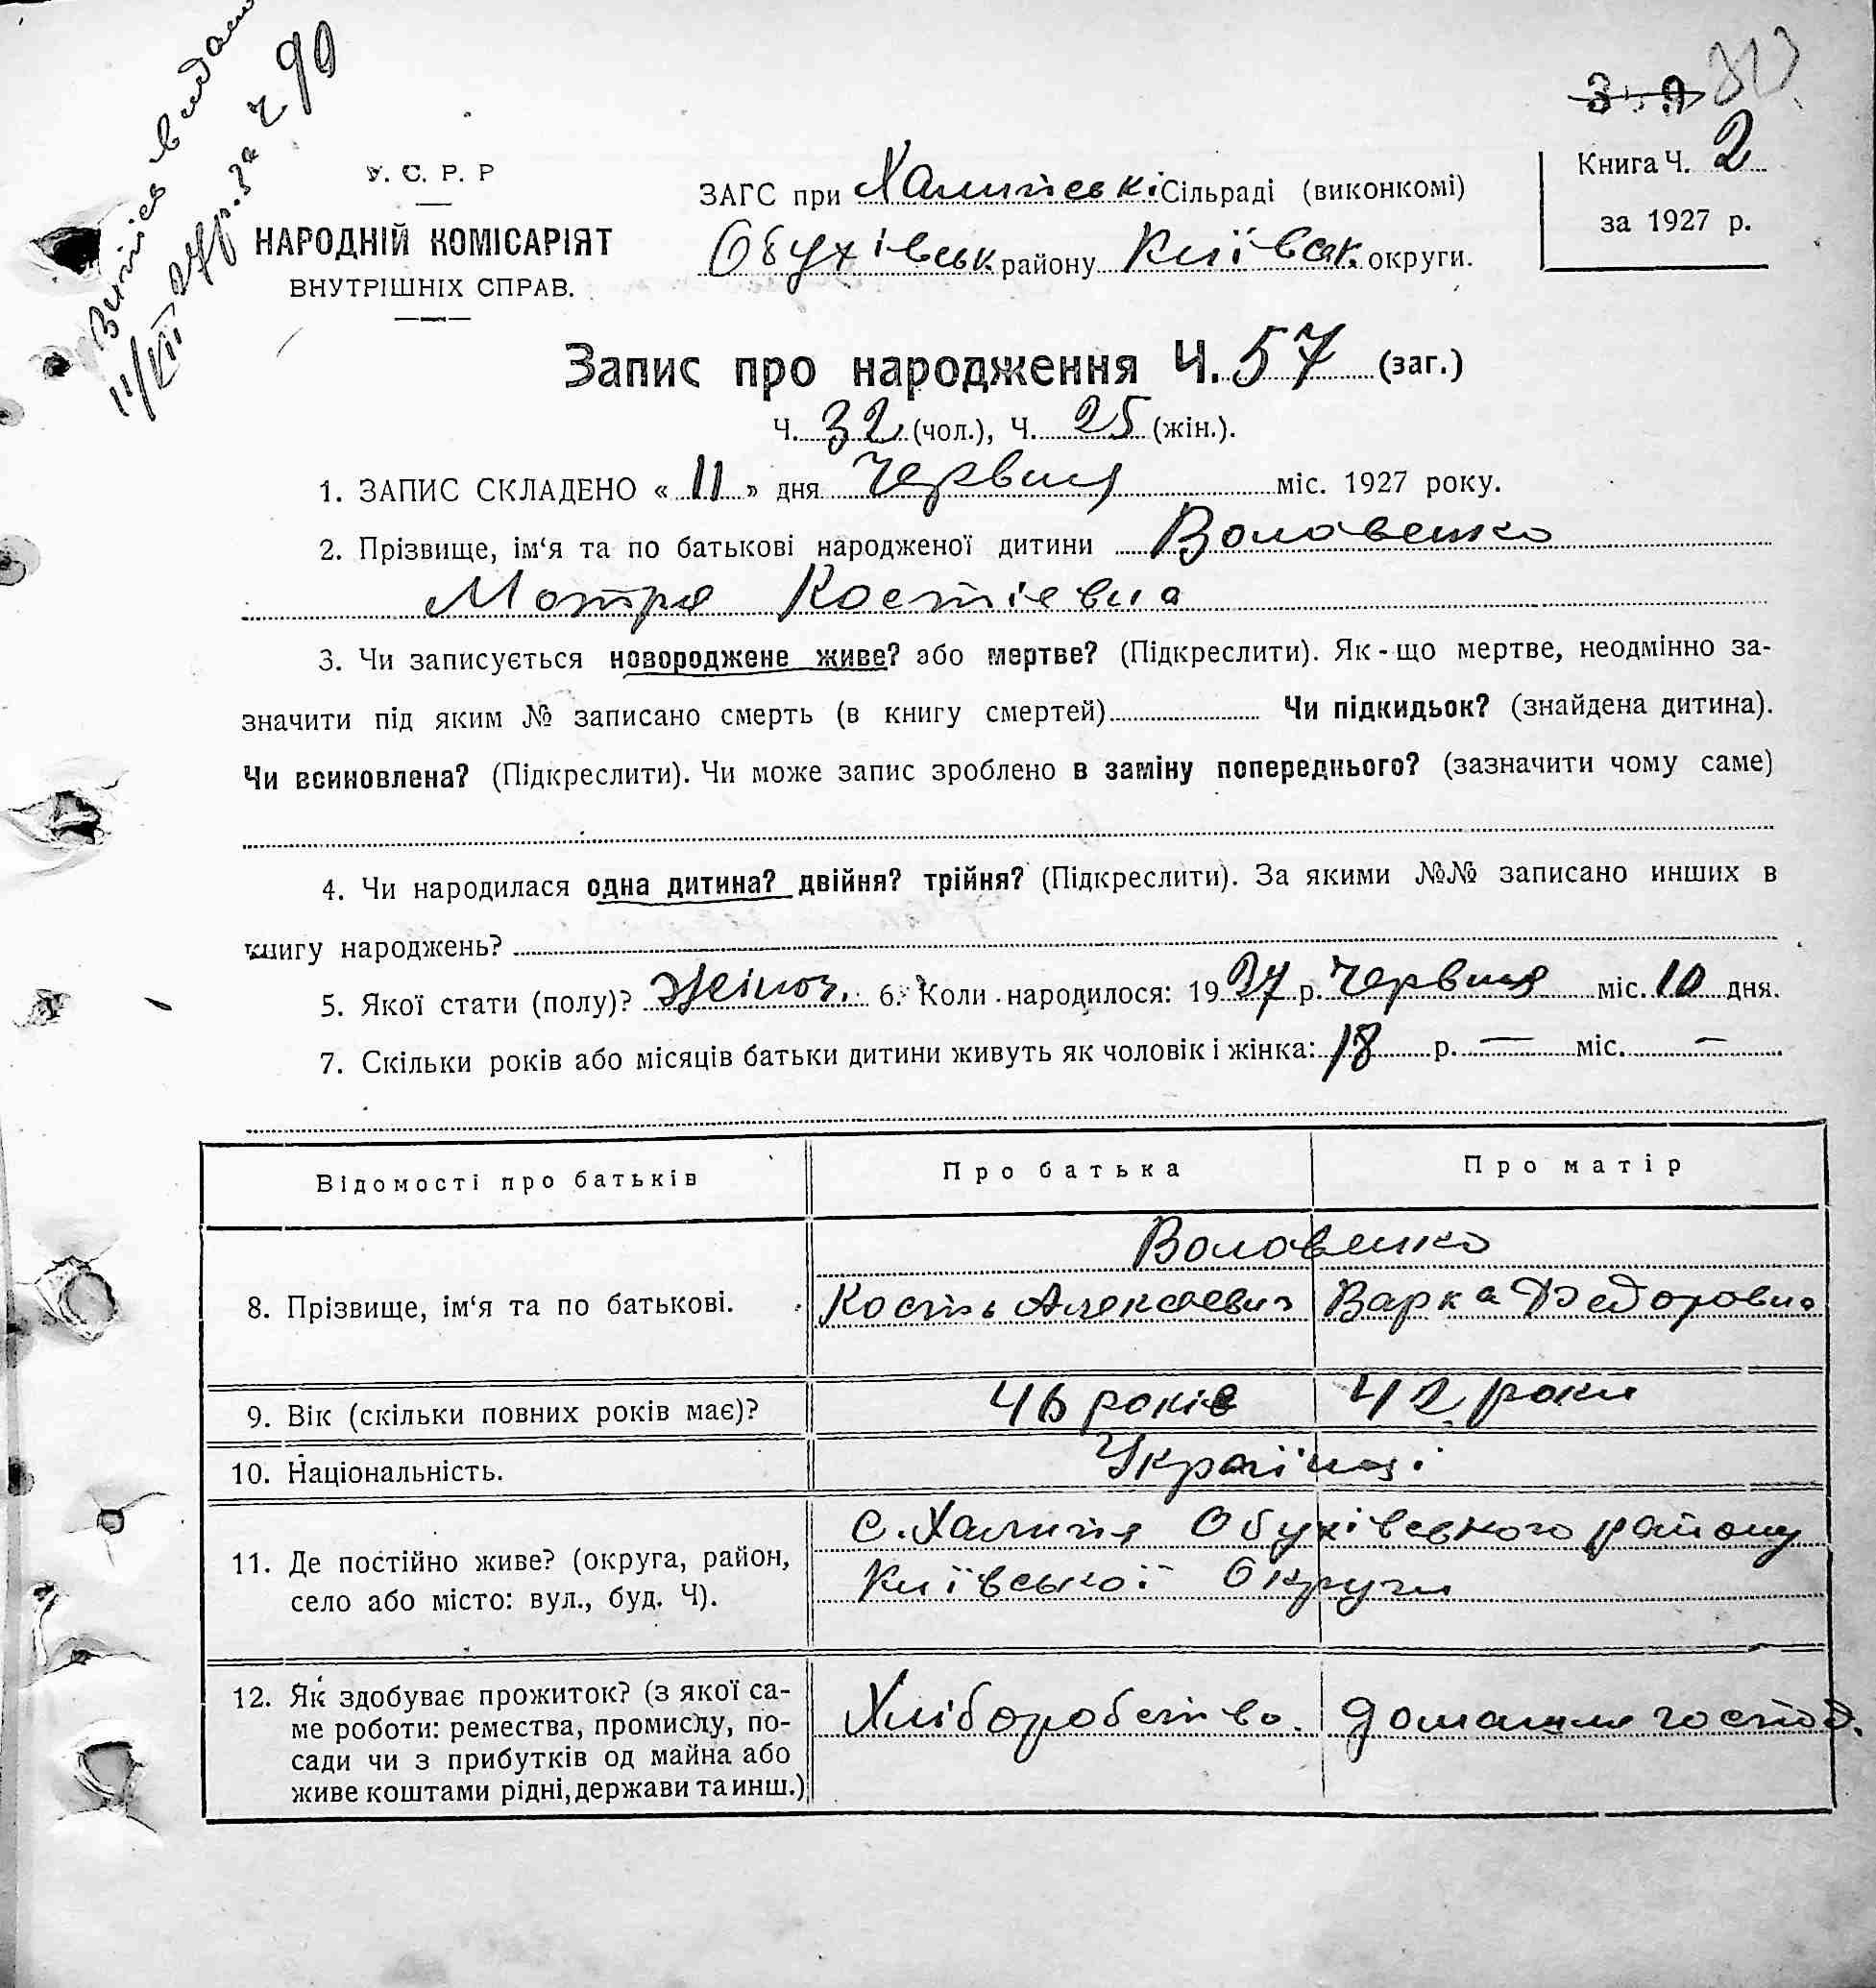 Витяг видан
11/VII 27 р. за ч 90
313
У. С. Р. Р
НАРОДНІЙ КОМІСАРІЯТ
ВНУТРІШНІХ СПРАВ.
ЗАГС при Халипські Сільраді (виконкомі)
Обухівськ. району Київськ. округи.
Книга Ч. 2
за 1927 р.
Запис про народження Ч. 57 (заг.)
Ч. 32 (чол.), Ч. 25 (жін.).
1. ЗАПИС СКЛАДЕНО « 11 » дня Червня міс. 1927 року.
2. Прізвище, ім‘я та по батькові народженої дитини Воловенко
Мотря Костієвна
3. Чи записується новороджене живе? або мертве? (Підкреслити). Як-що мертве, неодмінно за-
значити під яким № записано смерть (в книгу смертей) Чи підкидьок? (знайдена дитина).
Чи всиновлена? (Підкреслити). Чи може запис зроблено в заміну попереднього? (зазначити чому саме)
4. Чи народилася одна дитина? двійня? трійня? (Підкреслити). За якими №№ записано инших в
книгу народжень?
5. Якої стати (полу)? Жіноч. 6. Коли народилося: 1927 р. Червня міс. 10 дня.
7. Скільки років або місяців батьки дитини живуть як чоловік і жінка: 18 р. — міс. —
Відомості про батьків Про батька Про матір
Воловенко
8. Прізвище, ім‘я та по батькові. Кость Алексєєвич Варка Федоровна
9. Вік (скільки повних років має)? 46 років 42 роки
10. Національність. Українці
с. Халипя Обухівського району
11. Де постійно живе? (округа, район, Київської Округи
село або місто: вул., буд. Ч).
12. Як здобуває прожиток? (з якої са- Хлiборобство. домашнє господ.
ме роботи: ремества, промислу, по-
сади чи з прибутків од майна або
живе коштами рідні, держави та инш.)